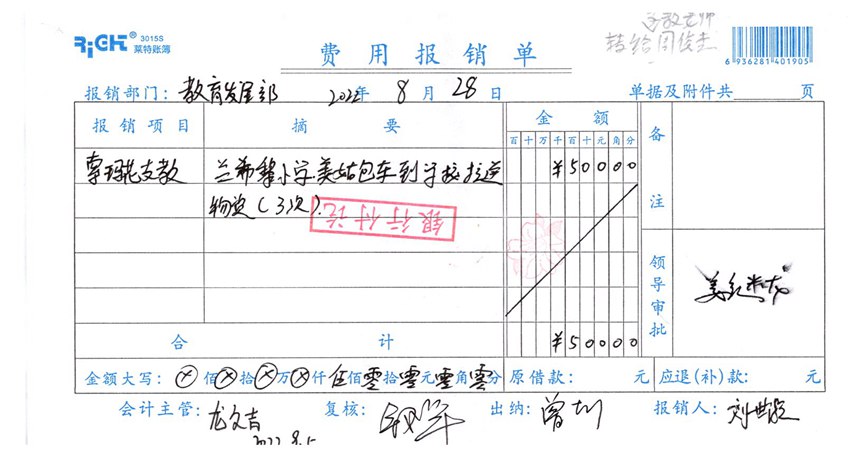 RiGHT® 3015S
莱特账簿
支教老师
转给周俊杰
6 936281 401905
费用报销单
报销部门: 教育发展部 2022年 8月 28日 单据及附件共 页
报销项目 摘要 金额 备注
百十万千百十元角分
支教 兰希黎小学.美姑包车到学校拉运 ¥50000
物资(3次).
银行付讫
领导审批
合计 ¥50000
金额大写: ⊗佰⊗拾⊗万⊗仟伍佰零拾零元零角零分 原借款: 元 应退(补)款: 元
会计主管: 龙文吉 复核: 出纳: 报销人:
2022.8.